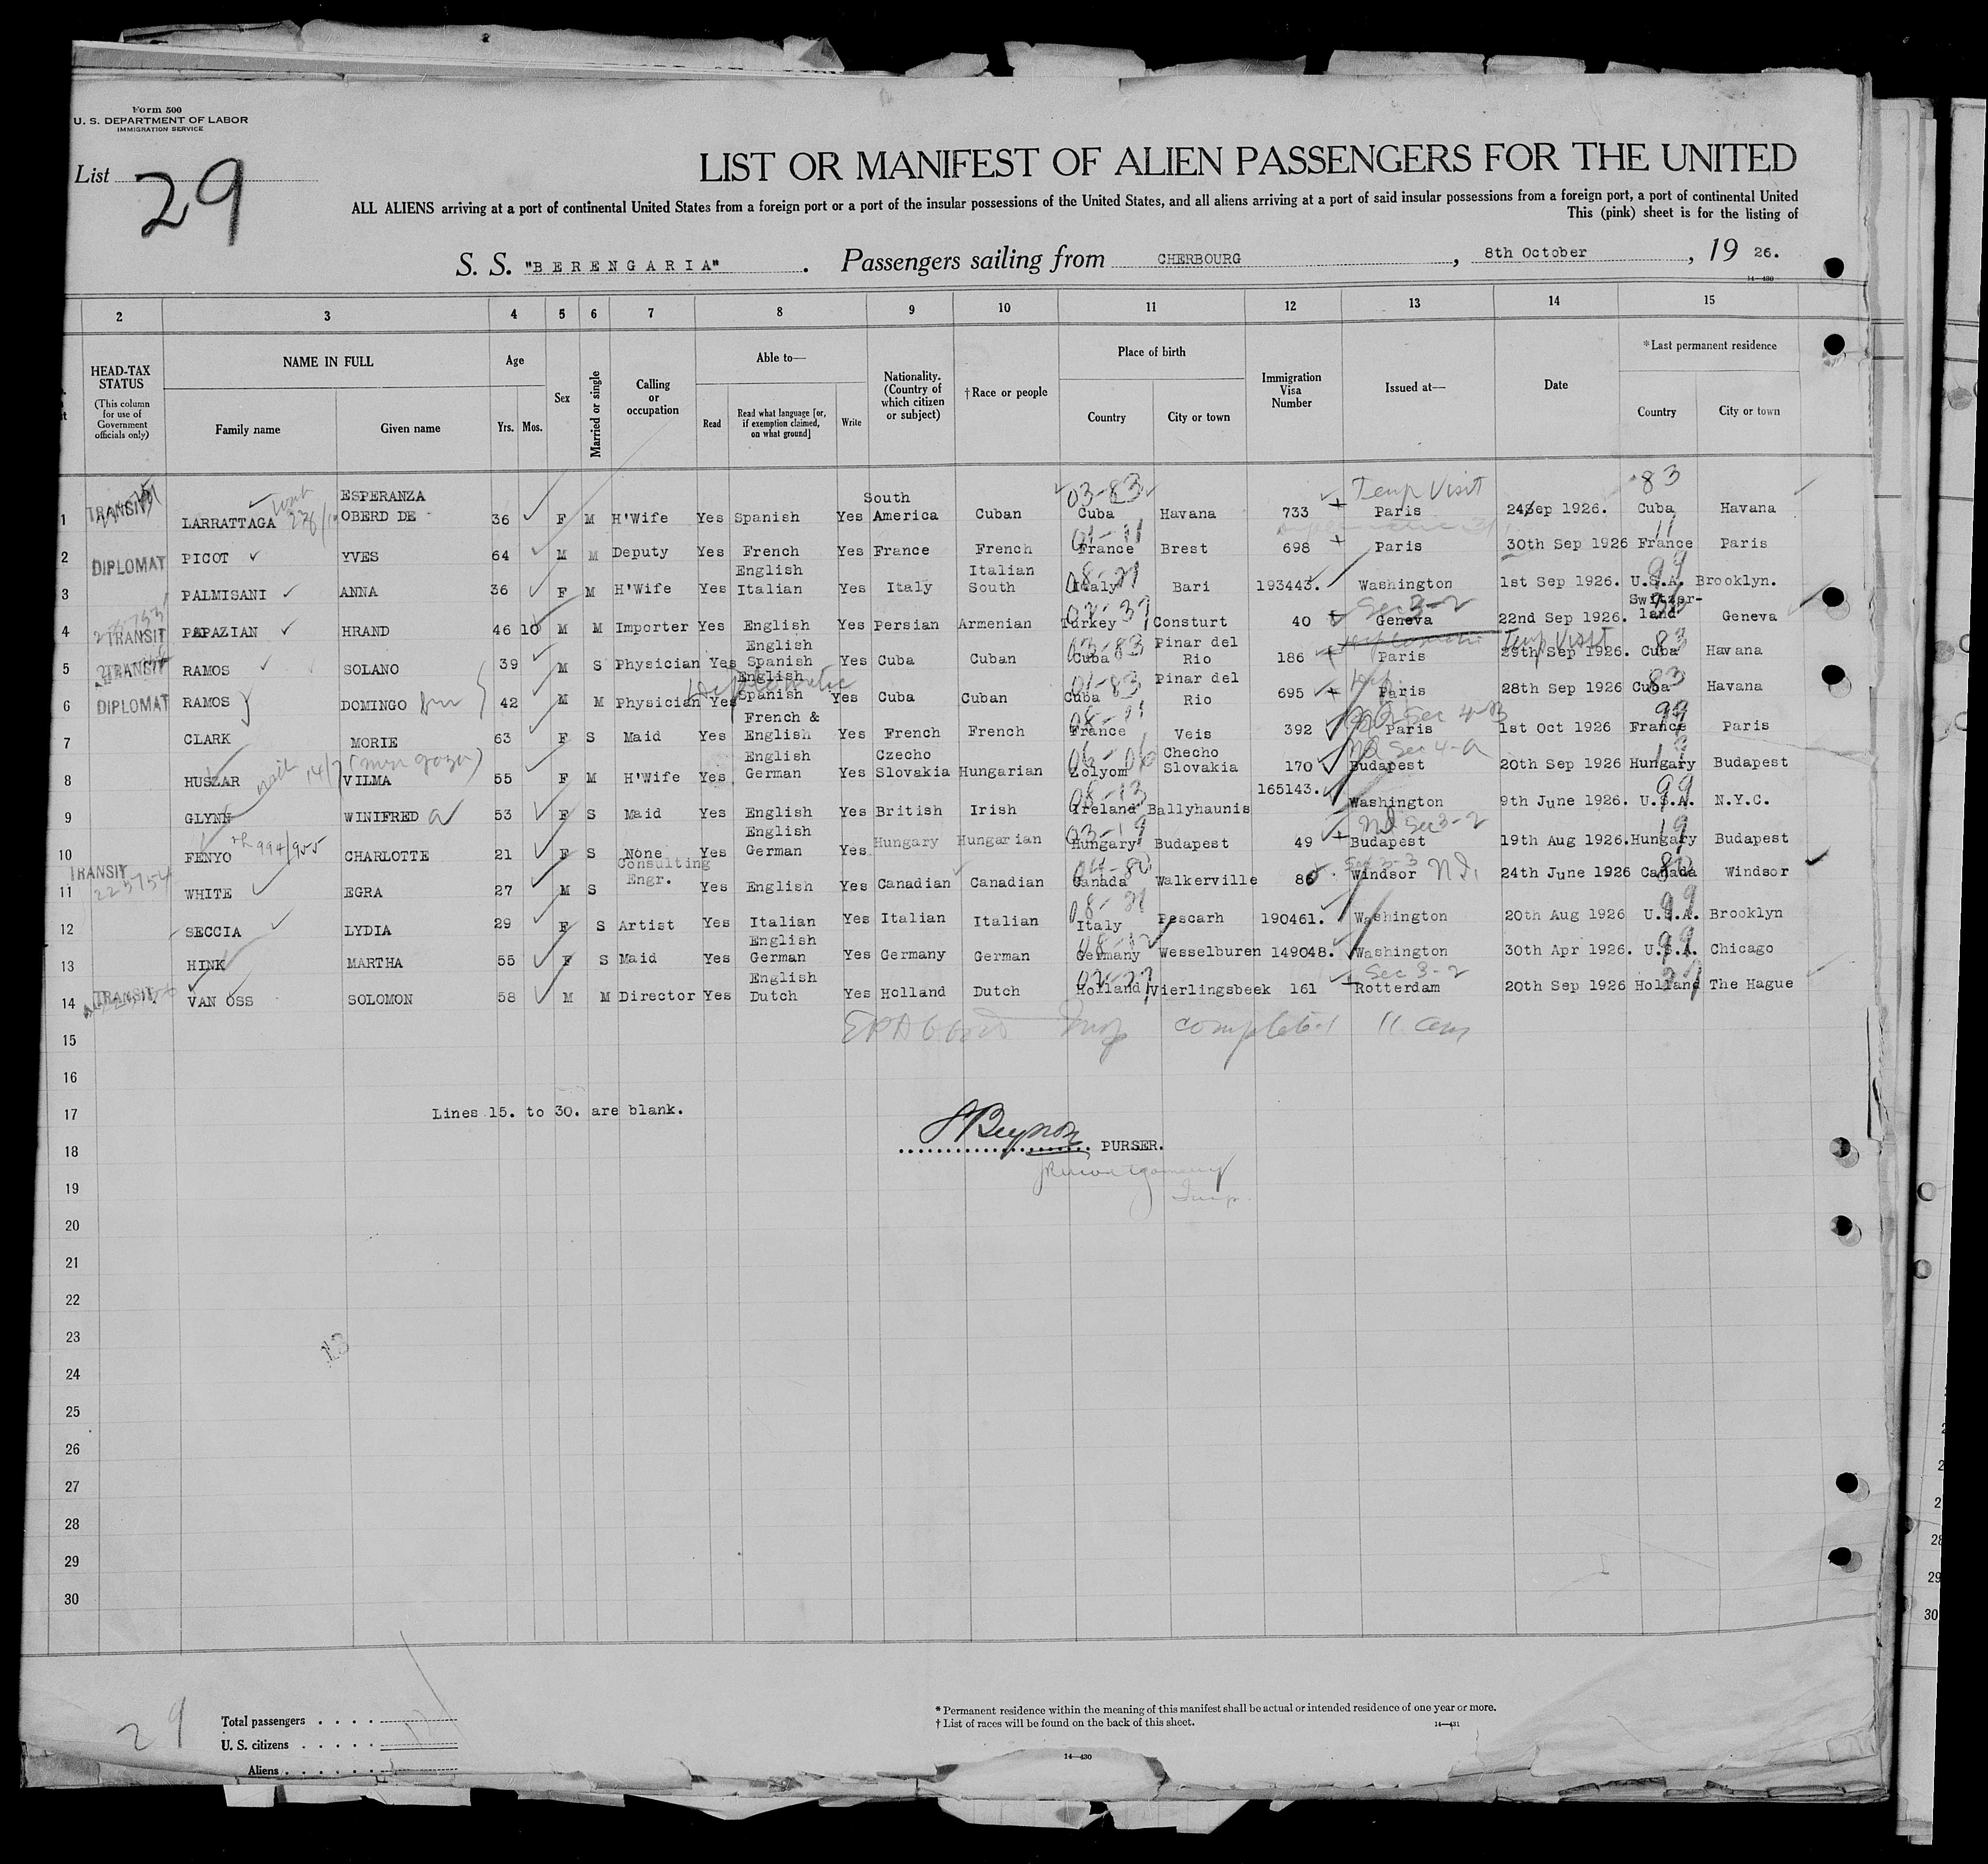 Form 500
U. S. DEPARTMENT OF LABOR
IMMIGRATION SERVICE
List 29
LIST OR MANIFEST OF ALIEN PASSENGERS FOR THE UNITED
ALL ALIENS arriving at a port of continental United States from a foreign port or a port of the insular possessions of the United States, and all aliens arriving at a port of said insular possessions from a foreign port, a port of continental United
This (pink) sheet is for the listing of
S. S. "BERENGARIA". Passengers sailing from CHERBOURG, 8th October, 19 26.
14—430
2 3 4 5 6 7 8 9 10 11 12 13 14 15
HEAD-TAX STATUS (This column for use of Government officials only)
NAME IN FULL Family name Given name
Age Yrs. Mos.
Sex
Married or single
Calling or occupation
Able to— Read Read what language [or, if exemption claimed, on what ground] Write
Nationality. (Country of which citizen or subject)
†Race or people
Place of birth Country City or town
Immigration Visa Number
Issued at—
Date
*Last permanent residence Country City or town
1 TRANSIT LARRATTAGA ESPERANZA OBERD DE 36 F M H'Wife Yes Spanish Yes South America Cuban 03-83 Cuba Havana 733 Temp Visit Paris 24 Sep 1926. 83 Cuba Havana
2 DIPLOMAT PICOT YVES 64 M M Deputy Yes French Yes France French 01-11 France Brest 698 Paris 30th Sep 1926 11 France Paris
3 PALMISANI ANNA 36 F M H'Wife Yes English Italian Yes Italy Italian South Italy Bari 193443. Washington 1st Sep 1926. 99 U.S.A. Brooklyn.
4 TRANSIT PAPAZIAN HRAND 46 10 M M Importer Yes English Yes Persian Armenian Turkey Consturt 40 Sec 3-2 Geneva 22nd Sep 1926. Switzer-land Geneva
5 TRANSIT RAMOS SOLANO 39 M S Physician Yes English Spanish Yes Cuba Cuban 03-83 Cuba Pinar del Rio 186 Paris Temp Visit 29th Sep 1926. 83 Cuba Havana
6 DIPLOMAT RAMOS DOMINGO 42 M M Physician Yes Diplomatic English Spanish Yes Cuba Cuban 01-83 Cuba Pinar del Rio 695 Paris 28th Sep 1926 83 Cuba Havana
7 CLARK MORIE 63 F S Maid Yes French & English Yes French French France Veis 392 Sec 4-B Paris 1st Oct 1926 99 France Paris
8 HUSZAR VILMA 55 F M H'Wife Yes English German Yes Czecho Slovakia Hungarian Zolyom Checho Slovakia 170 Sec 4-a Budapest 20th Sep 1926 Hungary Budapest
9 GLYNN WINIFRED 53 F S Maid Yes English Yes British Irish 08-13 Ireland Ballyhaunis 165143. Washington 9th June 1926. 99 U.S.A. N.Y.C.
10 FENYO CHARLOTTE 21 F S None Yes English German Yes Hungary Hungarian 03-19 Hungary Budapest 49 Sec 3-2 Budapest 19th Aug 1926. 19 Hungary Budapest
11 TRANSIT 225754 WHITE EGRA 27 M S Consulting Engr. Yes English Yes Canadian Canadian 04-80 Canada Walkerville 86 Sec 3-3 Windsor 24th June 1926 80 Canada Windsor
12 SECCIA LYDIA 29 F S Artist Yes Italian Yes Italian Italian Italy Pescarh 190461. Washington 20th Aug 1926 99 U.S.A. Brooklyn
13 HINK MARTHA 55 F S Maid Yes English German Yes Germany German 08-12 Germany Wesselburen 149048. Washington 30th Apr 1926. 99 U.S.A. Chicago
14 TRANSIT VAN OSS SOLOMON 58 M M Director Yes English Dutch Yes Holland Dutch Holland Vierlingsbeek 161 Sec 3-2 Rotterdam 20th Sep 1926 27 Holland The Hague
15 Insp completed 11 am
16
17 Lines 15. to 30. are blank.
18 PURSER.
19 Insp.
20
21
22
23
24
25
26
27
28
29
30
29
Total passengers
U. S. citizens
Aliens
* Permanent residence within the meaning of this manifest shall be actual or intended residence of one year or more.
† List of races will be found on the back of this sheet.
14—431
14—430